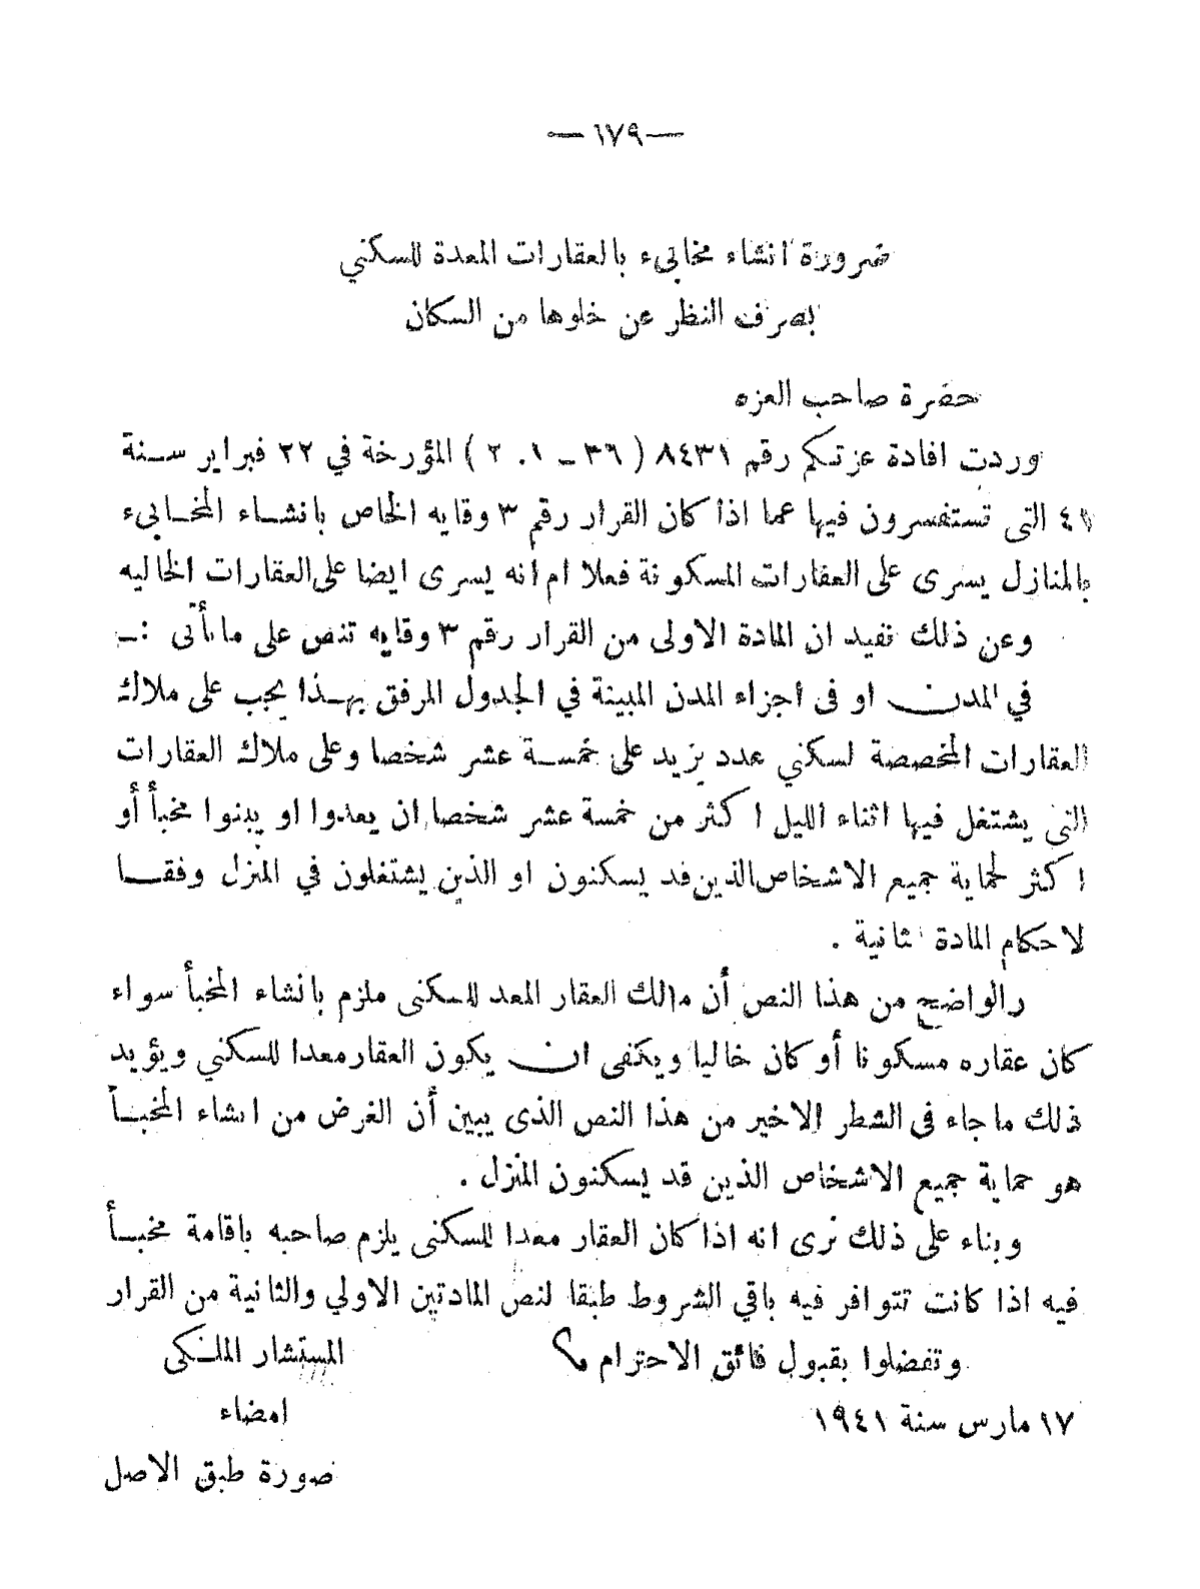 — ١٧٩ —
ضرورة انشاء مخابىء بالعقارات المعدة للسكني
بصرف النظر عن خلوها من السكان
حضرة صاحب العزه
وردت افادة عزتكم رقم ٨٤٣١ ( ٣٦ – ١ . ٢ ) المؤرخة في ٢٢ فبراير سنة
٤١ التى تستفسرون فيها عما اذا كان القرار رقم ٣ وقايه الخاص بانشاء المخابىء
بالمنازل يسرى على العقارات المسكونة فعلا ام انه يسرى ايضا على العقارات الخاليه
وعن ذلك نفيد ان المادة الاولى من القرار رقم ٣ وقايه تنص على ما يأتى :ــ
في المدن او فى اجزاء المدن المبينة في الجدول المرفق بهذا يجب على ملاك
العقارات المخصصة لسكني عدد يزيد على خمسة عشر شخصا وعلى ملاك العقارات
التى يشتغل فيها اثناء الليل اكثر من خمسة عشر شخصا ان يعدوا او يبنوا مخبأ أو
اكثر لحماية جميع الاشخاص الذين قد يسكنون او الذين يشتغلون في المنزل وفقا
لاحكام المادة الثانية .
والواضح من هذا النص أن مالك العقار المعد للسكنى ملزم بانشاء المخبأ سواء
كان عقاره مسكونا أو كان خاليا ويكفى ان يكون العقار معدا للسكني ويؤيد
ذلك ما جاء فى الشطر الاخير من هذا النص الذى يبين أن الغرض من انشاء المخبأ
هو حماية جميع الاشخاص الذين قد يسكنون المنزل .
وبناء على ذلك نرى انه اذا كان العقار معدا للسكنى يلزم صاحبه باقامة مخبأ
فيه اذا كانت تتوافر فيه باقي الشروط طبقا لنص المادتين الاولي والثانية من القرار
وتفضلوا بقبول فائق الاحترام
المستشار الملكى
١٧ مارس سنة ١٩٤١
امضاء
صورة طبق الاصل